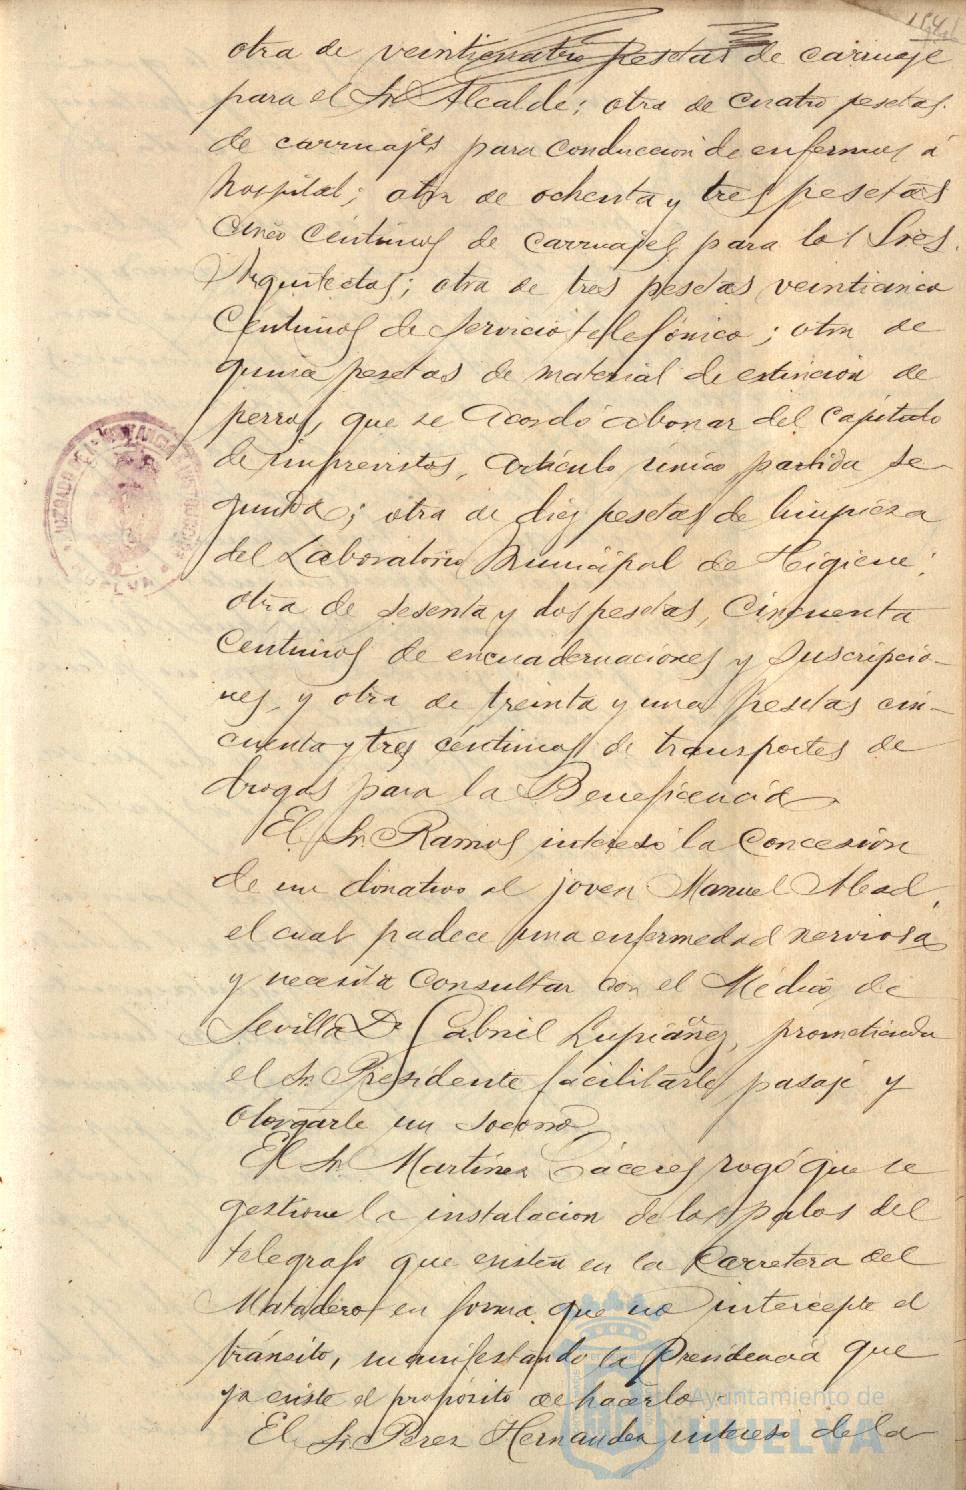 otra de veinticuatro pesetas de carruaje
para el Sr. Alcalde; otra de cuatro pesetas
de carruajes para conduccion de enfermos á
hospital; otra de ochenta y tres pesetas
cinco céntimos de carruajes para los Sres.
Arquitectos; otra de tres pesetas veinticinco
centimos de servicio telefónico; otra de
quince pesetas de material de extincion de
perros, que se acordó abonar del capítulo
de imprevistos, artículo único partida se-
gunda; otra de diez pesetas de limpieza
del Laboratorio Municipal de Higiene;
otra de sesenta y dos pesetas, cincuenta
centimos de encuadernaciones y suscripcio-
nes, y otra de treinta y una pesetas cin-
cuenta y tres céntimos de transportes de
drogas para la Beneficencia.
El Sr. Ramos interesó la concesión
de un donativo al joven Manuel Abad,
el cual padece una enfermedad nerviosa
y necesita consultar con el Médico de
Sevilla Dn Gabriel Lupiáñez, prometiendo
el Sr. Presidente facilitarle pasaje y
otorgarle un socorro.
El Sr. Martínez Cáceres rogó que se
gestione la instalacion de los palos del
telegrafo que existen en la Carretera del
Matadero en forma que no intercepte el
tránsito, manifestando la Presidencia que
ya existe el propósito de hacerlo.
El Sr. Perez Hernandez interesó de la
Ayuntamiento de
HUELVA